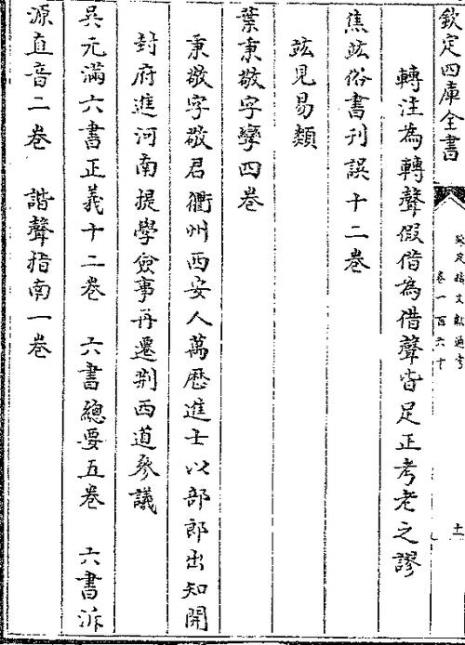 欽定四庫全書
欽定續文獻通考
卷一百六十
十
轉注為轉聲假借為借聲皆足正考老之謬
焦竑俗書刊誤十二卷
竑見易類
葉秉敬字孿四卷
秉敬字敬君衢州西安人萬歷進士以部郎出知開
封府進河南提學僉事再遷荆西道參議
吳元滿六書正義十二卷　六書總要五卷　六書泝
源直音二卷　諧聲指南一卷